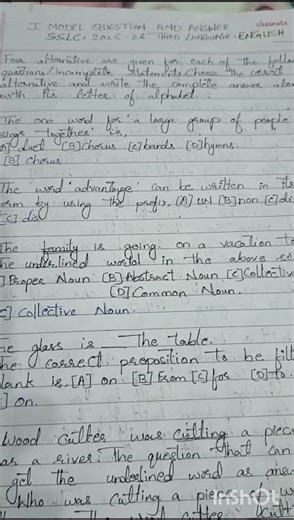 I MODEL QUESTION AND ANSWER
classmate
SSLC - 2025-26 THIRD LANGUAGE - ENGLISH
Four alternative are given for each of the follow
questions/incomplete statements choose the correct
alternative and write the complete answer alon
with its letter of alphabet.
The one word for 'a large group of people
sings together' is,
A] duet [B] chorus [C] bands [D] hymns.
[B] chorus.
The word 'advantage' can be written in its
by using the prefix, [A] UN [B] non [C] dis
[C] dis
The family is going on a vacation to
he underlined word in the above se
] Proper Noun [B] Abstract Noun [C] Collective
[D] Common Noun.
C] Collective Noun.
he glass is ___ The table.
he correct preposition to be fill
lank is [A] on [B] From [C] for [D] to
] on.
Wood Cutter was cutting a piece
a river. The question that can
get the underlined word as answ
Who was cutting a piece
InShOt